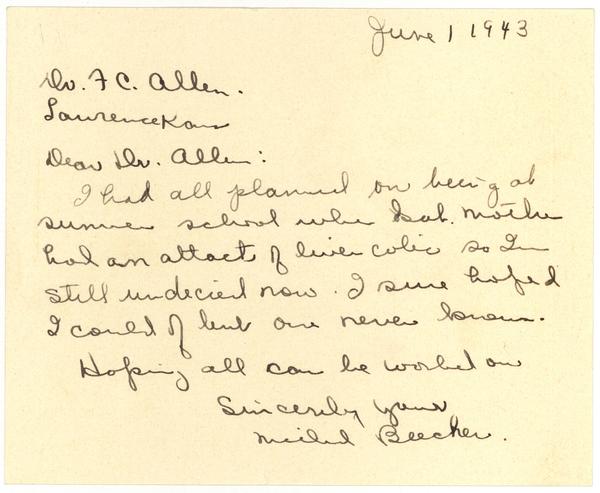 June 1 1943
Dr. F C. Allen.
Lawrence Kans
Dear Dr. Allen:
I had all planned on being at
summer school when Sat. Mother
had an attact of liver colic so Im
still undecied now. I sure hoped
I could of but one never knows.
Hoping all can be worked out
Sincerely yours
Beecher.